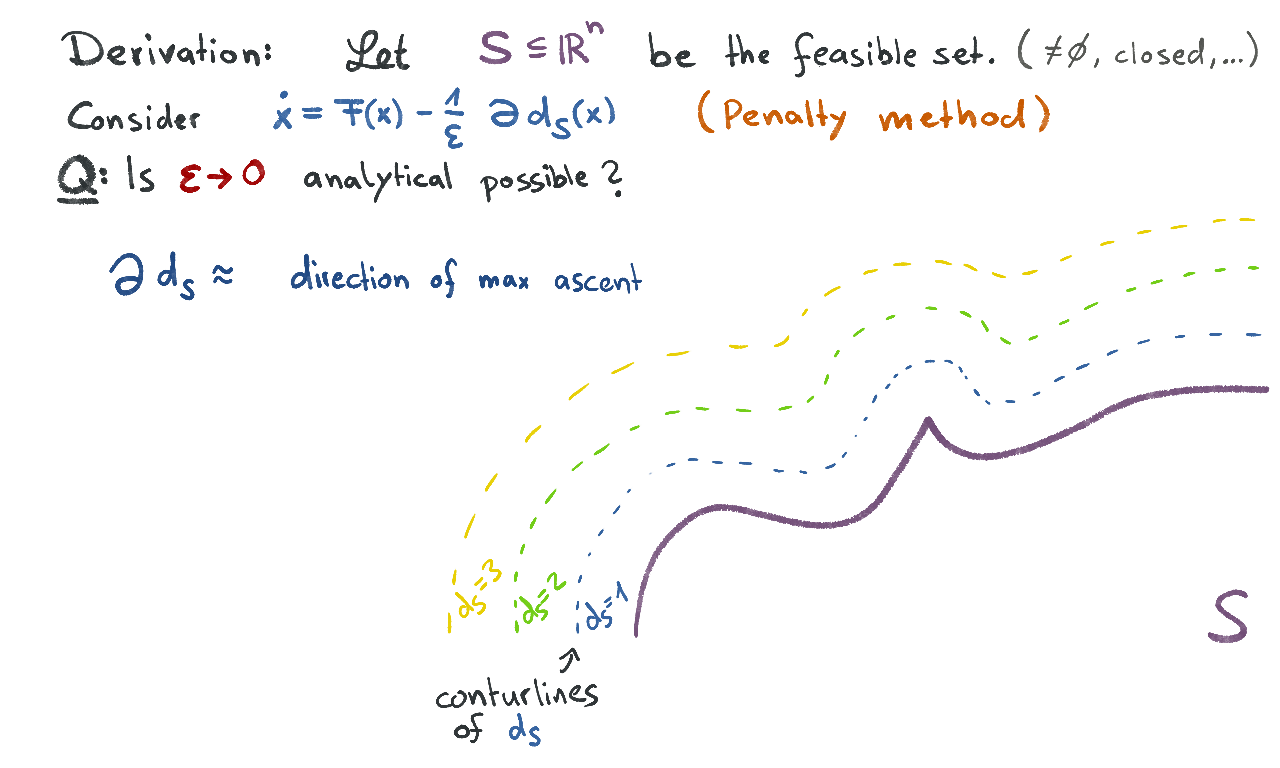 Derivation: Let S ⊆ ℝⁿ be the feasible set. (≠∅, closed,...)
Consider ẋ = F(x) - 1/ε ∂ d_S(x) (Penalty method)
Q: Is ε→0 analytical possible?
∂ d_S ≈ direction of max ascent
d_S=3
d_S=2
d_S=1
S
conturlines
of d_S